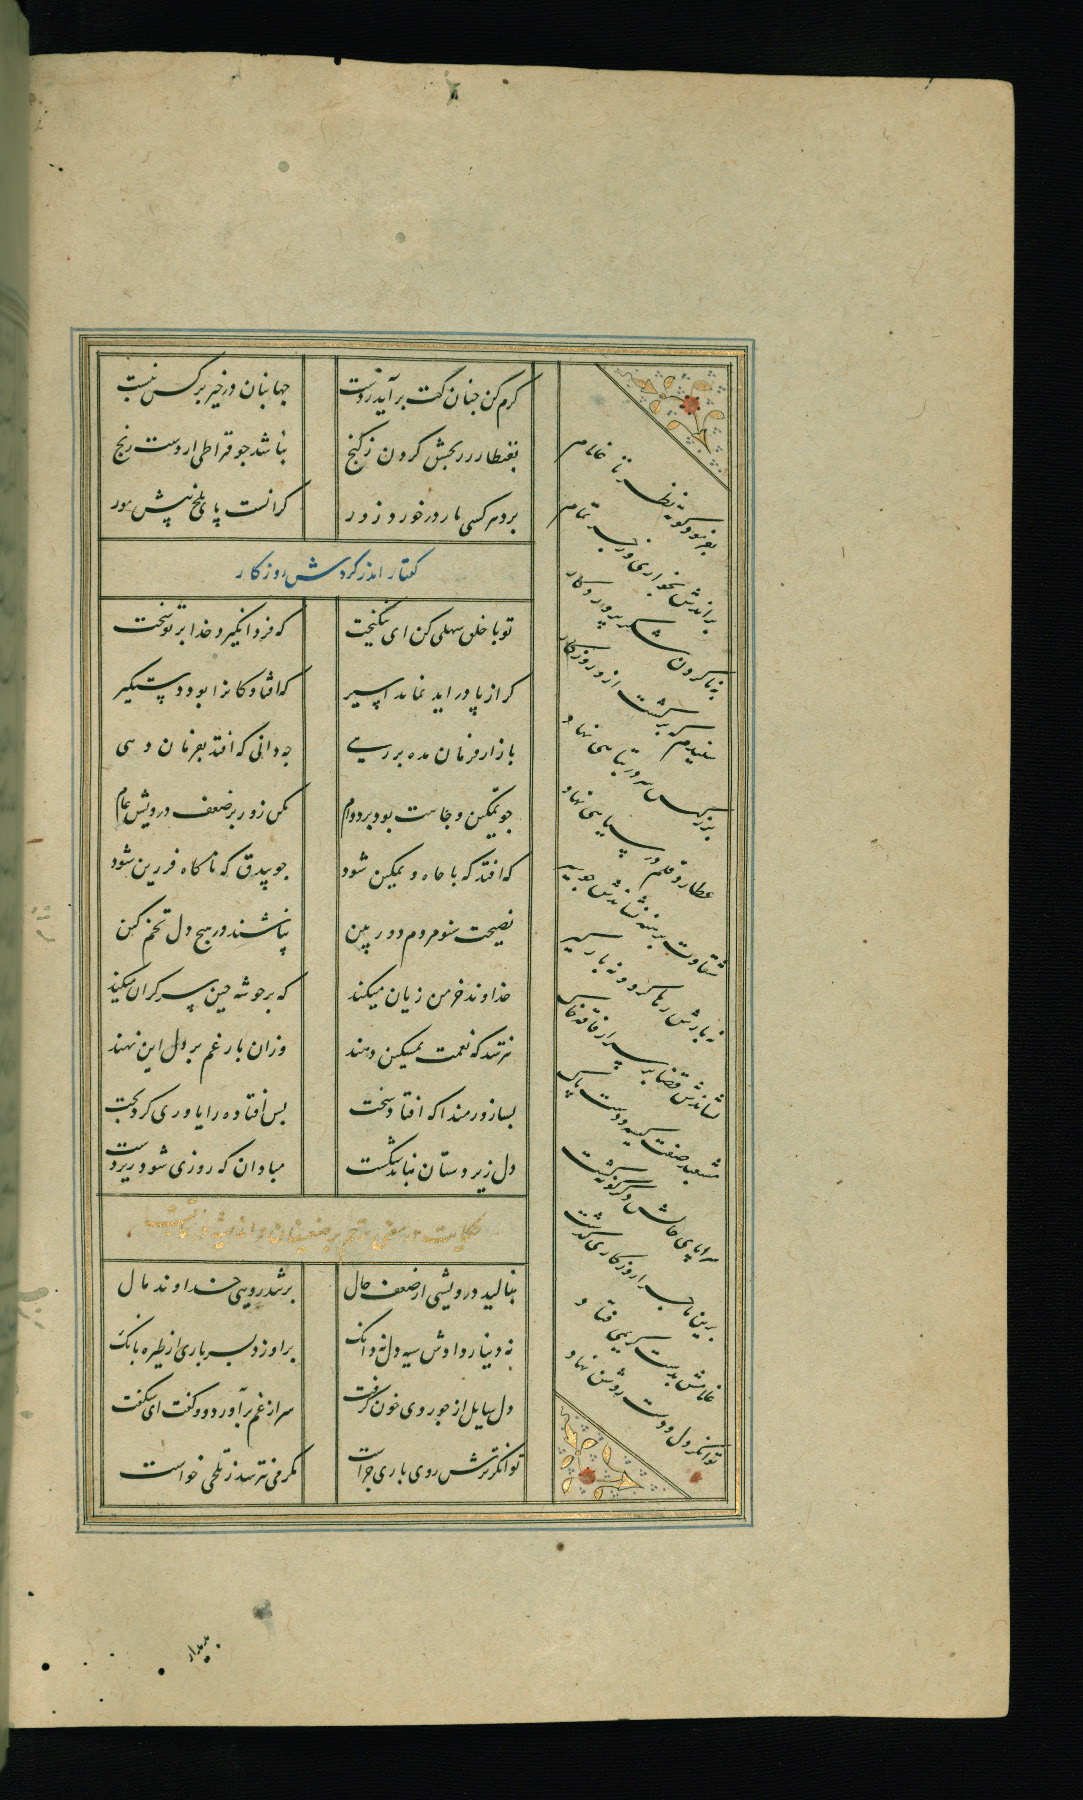 کرم کن چنان کت برآید ز دست جهانبان در خیر بر کس نبست
بقنطار زر بخش کردن ز گنج نباشد چو قیراطی از دست رنج
برد هر کسی بار در خورد زور گرانست پای ملخ پیش مور
گفتار اندر گردش روزگار
تو با خلق سهلی کن ای نیکبخت که فردا نگیرد خدا بر تو سخت
گر از پا در آید نماند اسیر که افتادگانرا بود دستگیر
بآزار فرمان مده بر رهی چه دانی که افتد بفرمان دهی
چو تمکین و جاهت بود بر دوام مکن زور بر ضعف درویش عام
که افتد که با جاه و تمکین شود چو بیدق که ناگاه فرزین شود
نصیحت شنو مردم دوربین نپاشند در هیچ دل تخم کین
خداوند خرمن زیان میکند که بر خوشه چین سر گران میکند
نترسد که نعمت بمسکین دهند وزان بار غم بر دل این نهند
بسا زورمندا که افتاد سخت بس افتاده را یاوری کرد بخت
دل زیردستان نباید شکست مبادا که روزی شوی زیردست
حکایت در معنی ترحم بر ضعیفان و اندیشه در عاقبت
بنالید درویشی از ضعف حال بر تندرویی خداوند مال
نه دینار دادش سیه دل نه دانک برو زد بسرباری از طیره بانک
دل سایل از جور وی خون گرفت سر از غم برآورد و گفت ای شگفت
توانگر ترش روی باری چراست مگر می نترسد ز تلخی خواست
بفرمود کوته نظر تا غلام
براندش بخواری و زجر تمام
بناکردن شکر پروردگار
شنیدم که برگشت ازو روزگار
بزرگیش سر در تباهی نهاد
عطارد قلم در سیاهی نهاد
شقاوت برهنه نشاندش چو سیر
نه بارش رها کرد و نه بارگیر
نشاندش قضا بر سر از فاقه خاک
مشعبد صفت کیسه و دست پاک
سراپای حالش دگرگونه گشت
برین ماجرا روزگاری گذشت
غلامش بدست کریمی فتاد
توانگر دل و دست و روشن نهاد